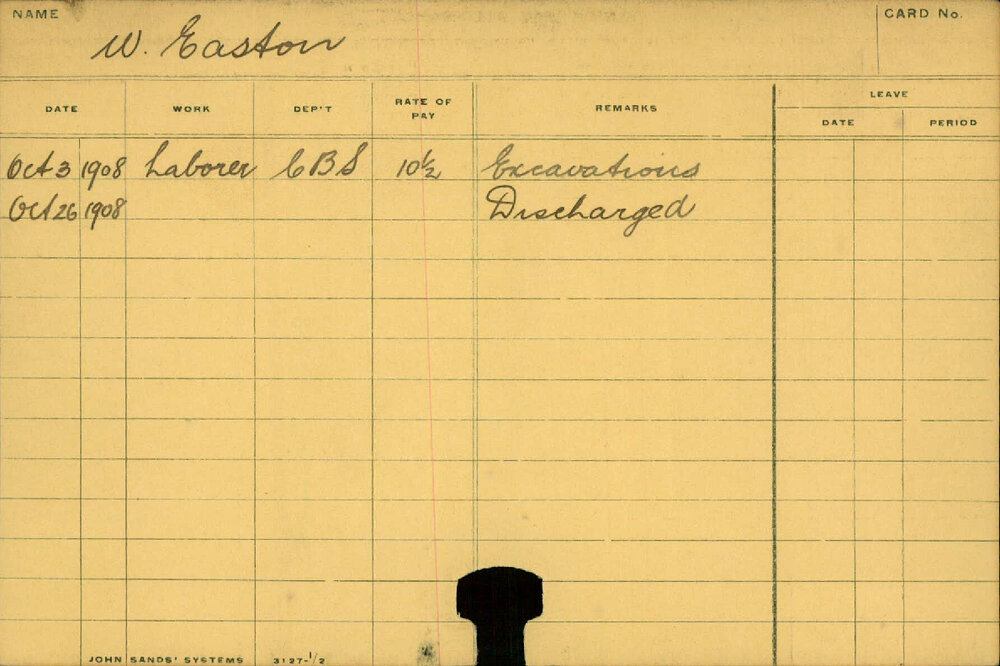 NAME CARD No.
W. Easton
LEAVE
DATE WORK DEP'T RATE OF PAY REMARKS DATE PERIOD
Oct 3 1908 Laborer CBS 10½ Excavations
Oct 26 1908 Discharged
JOHN SANDS' SYSTEMS 3127-1/2